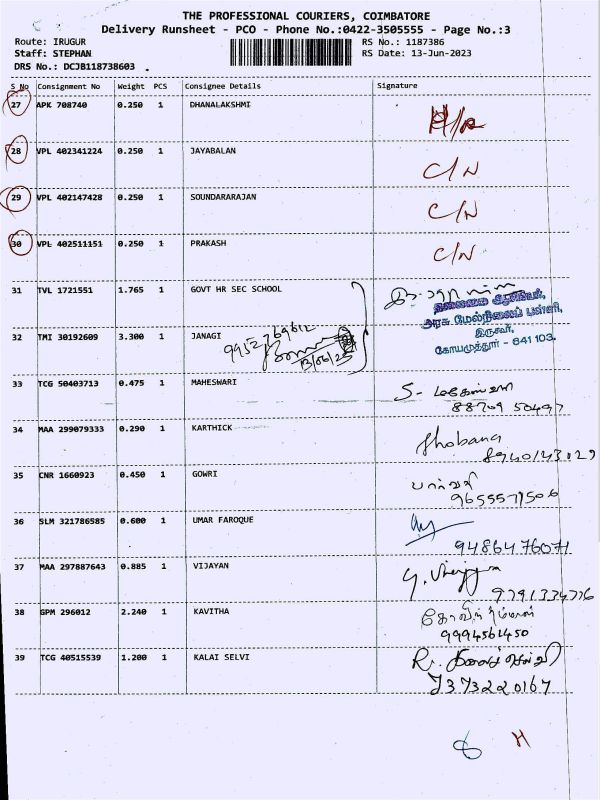 THE PROFESSIONAL COURIERS, COIMBATORE
Delivery Runsheet - PCO - Phone No.:0422-3505555 - Page No.:3
Route: IRUGUR RS No.: 1187386
Staff: STEPHAN RS Date: 13-Jun-2023
DRS No.: DCJB118738603
S No Consignment No Weight PCS Consignee Details Signature
27 APK 708740 0.250 1 DHANALAKSHMI
28 VPL 402341224 0.250 1 JAYABALAN C/N
29 VPL 402147428 0.250 1 SOUNDARARAJAN C/N
30 VPL 402511151 0.250 1 PRAKASH C/N
31 TVL 1721551 1.765 1 GOVT HR SEC SCHOOL
தலைமை ஆசிரியர்,
அரசு மேல்நிலைப் பள்ளி,
இருகூர்,
கோயமுத்தூர் - 641 103.
32 TMI 30192609 3.300 1 JANAGI
33 TCG 50403713 0.475 1 MAHESWARI S- மகேஸ்வரி
88709 50497
34 MAA 299079333 0.290 1 KARTHICK Shobana
8940143029
35 CNR 1660923 0.450 1 GOWRI
9655571506
36 SLM 321786585 0.600 1 UMAR FAROQUE
9486476071
37 MAA 297887643 0.885 1 VIJAYAN
9791334776
38 GPM 296012 2.240 1 KAVITHA
9994561450
39 TCG 40515539 1.200 1 KALAI SELVI R. கலைச்செல்வி
7373220167
8 H